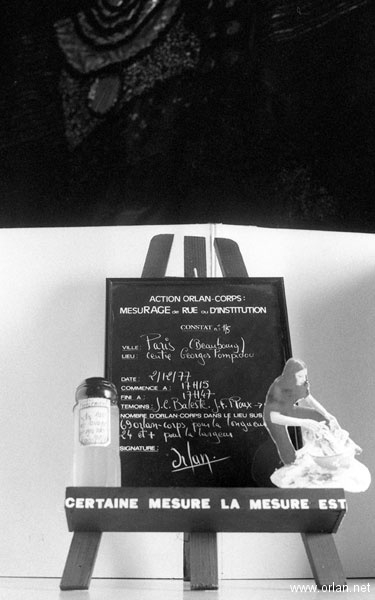 ACTION ORLAN-CORPS:
MESURAGE de RUE ou D'INSTITUTION
CONSTAT n°
VILLE: Paris (Beaubourg)
LIEU: Centre Georges Pompidou
DATE: 2/12/77
COMMENCE A: 17H15
FINI A: 17H47
TEMOINS: J.C. Baleste, J.F. Roux
NOMBRE D'ORLAN CORPS DANS LE LIEU SUS
69 orlan-corps pour la longueur
24 et + pour la largeur
SIGNATURE:
Orlan
CERTAINE MESURE LA MESURE EST
www.orlan.net